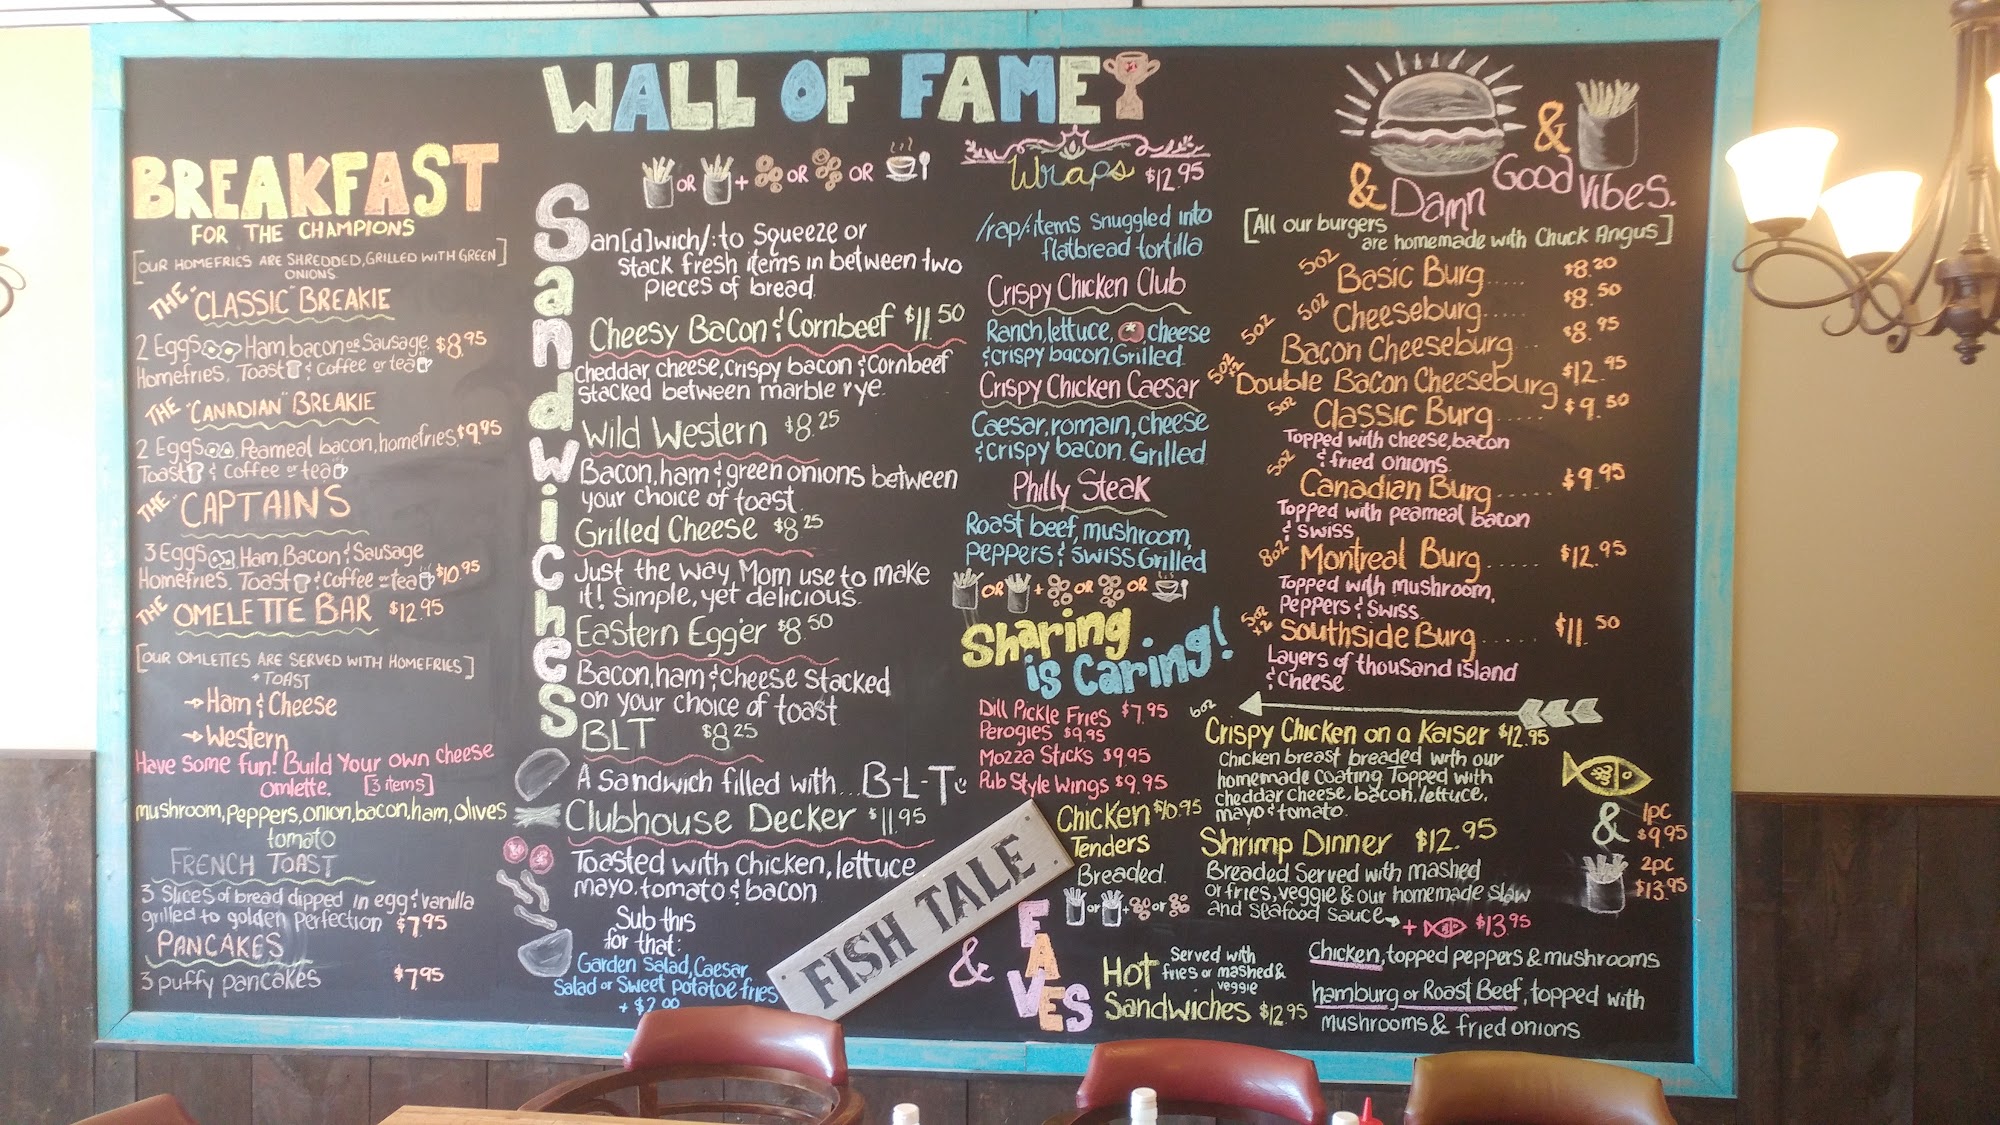 WALL OF FAME
BREAKFAST
FOR THE CHAMPIONS
[OUR HOMEFRIES ARE SHREDDED, GRILLED WITH GREEN
ONIONS]
THE "CLASSIC" BREAKIE
2 Eggs Ham bacon or Sausage, $8.95
Homefries. Toast & coffee or tea
THE "CANADIAN" BREAKIE
2 Eggs Peameal bacon, homefries, $9.95
Toast & coffee or tea
THE "CAPTAINS
3 Eggs Ham, Bacon & Sausage
Homefries. Toast & coffee or tea $10.95
THE OMELETTE BAR $12.95
[OUR OMLETTES ARE SERVED WITH HOMEFRIES]
+ TOAST
→Ham & Cheese
→Western
Have some fun! Build Your own cheese
omlette. [3 items]
mushroom, peppers, onion, bacon, ham, olives
tomato
FRENCH TOAST
3 Slices of bread dipped in egg & vanilla
grilled to golden perfection $7.95
PANCAKES
3 puffy pancakes $7.95
Sandwiches
OR + OR OR
an[d]wich/: to squeeze or
stack fresh items in between two
pieces of bread.
Cheesy Bacon & Cornbeef $11.50
cheddar cheese, crispy bacon & Cornbeef
stacked between marble rye.
Wild Western $8.25
Bacon, ham & green onions between
your choice of toast.
Grilled Cheese $8.25
Just the way Mom use to make
it! Simple, yet delicious.
Eastern Egg'er $8.50
Bacon, ham & cheese stacked
on your choice of toast.
BLT $8.25
A sandwich filled with... B-L-T
Clubhouse Decker $11.95
Toasted with Chicken, lettuce,
mayo, tomato & bacon
Sub this
for that:
Garden Salad, Caesar
Salad or Sweet potatoe fries
+ $2.00
Wraps $12.95
/rap/: items snuggled into
flatbread tortilla
Crispy Chicken Club
Ranch, lettuce, , cheese
& crispy bacon. Grilled.
Crispy Chicken Caesar
Caesar, romain, cheese
& crispy bacon. Grilled.
Philly Steak
Roast beef, mushroom,
peppers & swiss Grilled
OR + OR OR
Sharing
is Caring!
Dill Pickle Fries $7.95
Perogies $9.95
Mozza Sticks $9.95
Pub Style Wings $9.95
Chicken $10.95
Tenders
Breaded.
or + or
FISH TALE
& FAVES
HOT
Sandwiches $12.95
Served with
fries or mashed &
veggie
Chicken, topped peppers & mushrooms
hamburg or Roast Beef, topped with
mushrooms & fried onions.
& Damn Good Vibes.
&
[All our burgers
are homemade with Chuck Angus]
5oz Basic Burg..... $8.20
5oz Cheeseburg..... $8.50
5oz Bacon Cheeseburg... $8.95
5oz x2 Double Bacon Cheeseburg $12.95
5oz Classic Burg..... $9.50
Topped with cheese, bacon
& fried onions.
5oz Canadian Burg..... $9.95
Topped with peameal bacon
& Swiss
8oz Montreal Burg..... $12.95
Topped with mushroom,
Peppers & Swiss.
5oz x2 Southside Burg..... $11.50
Layers of thousand island
& cheese
6oz Crispy Chicken on a Kaiser $12.95
Chicken breast breaded with our
homemade coating Topped with
cheddar cheese, bacon, lettuce,
mayo & tomato.
Shrimp Dinner $12.95
Breaded Served with mashed
or fries, veggie & our homemade slaw
and seafood sauce → + $13.95
&
1pc
$9.95
2pc
$13.95